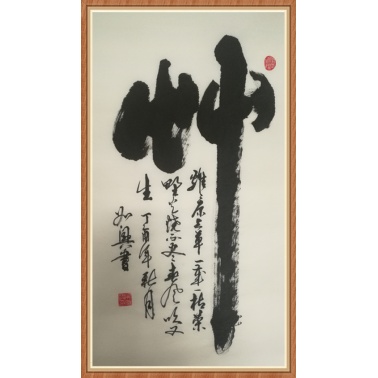 艸
離原上草一歲一枯榮
野火燒不盡春風吹又
生 丁酉年秋月
如興書